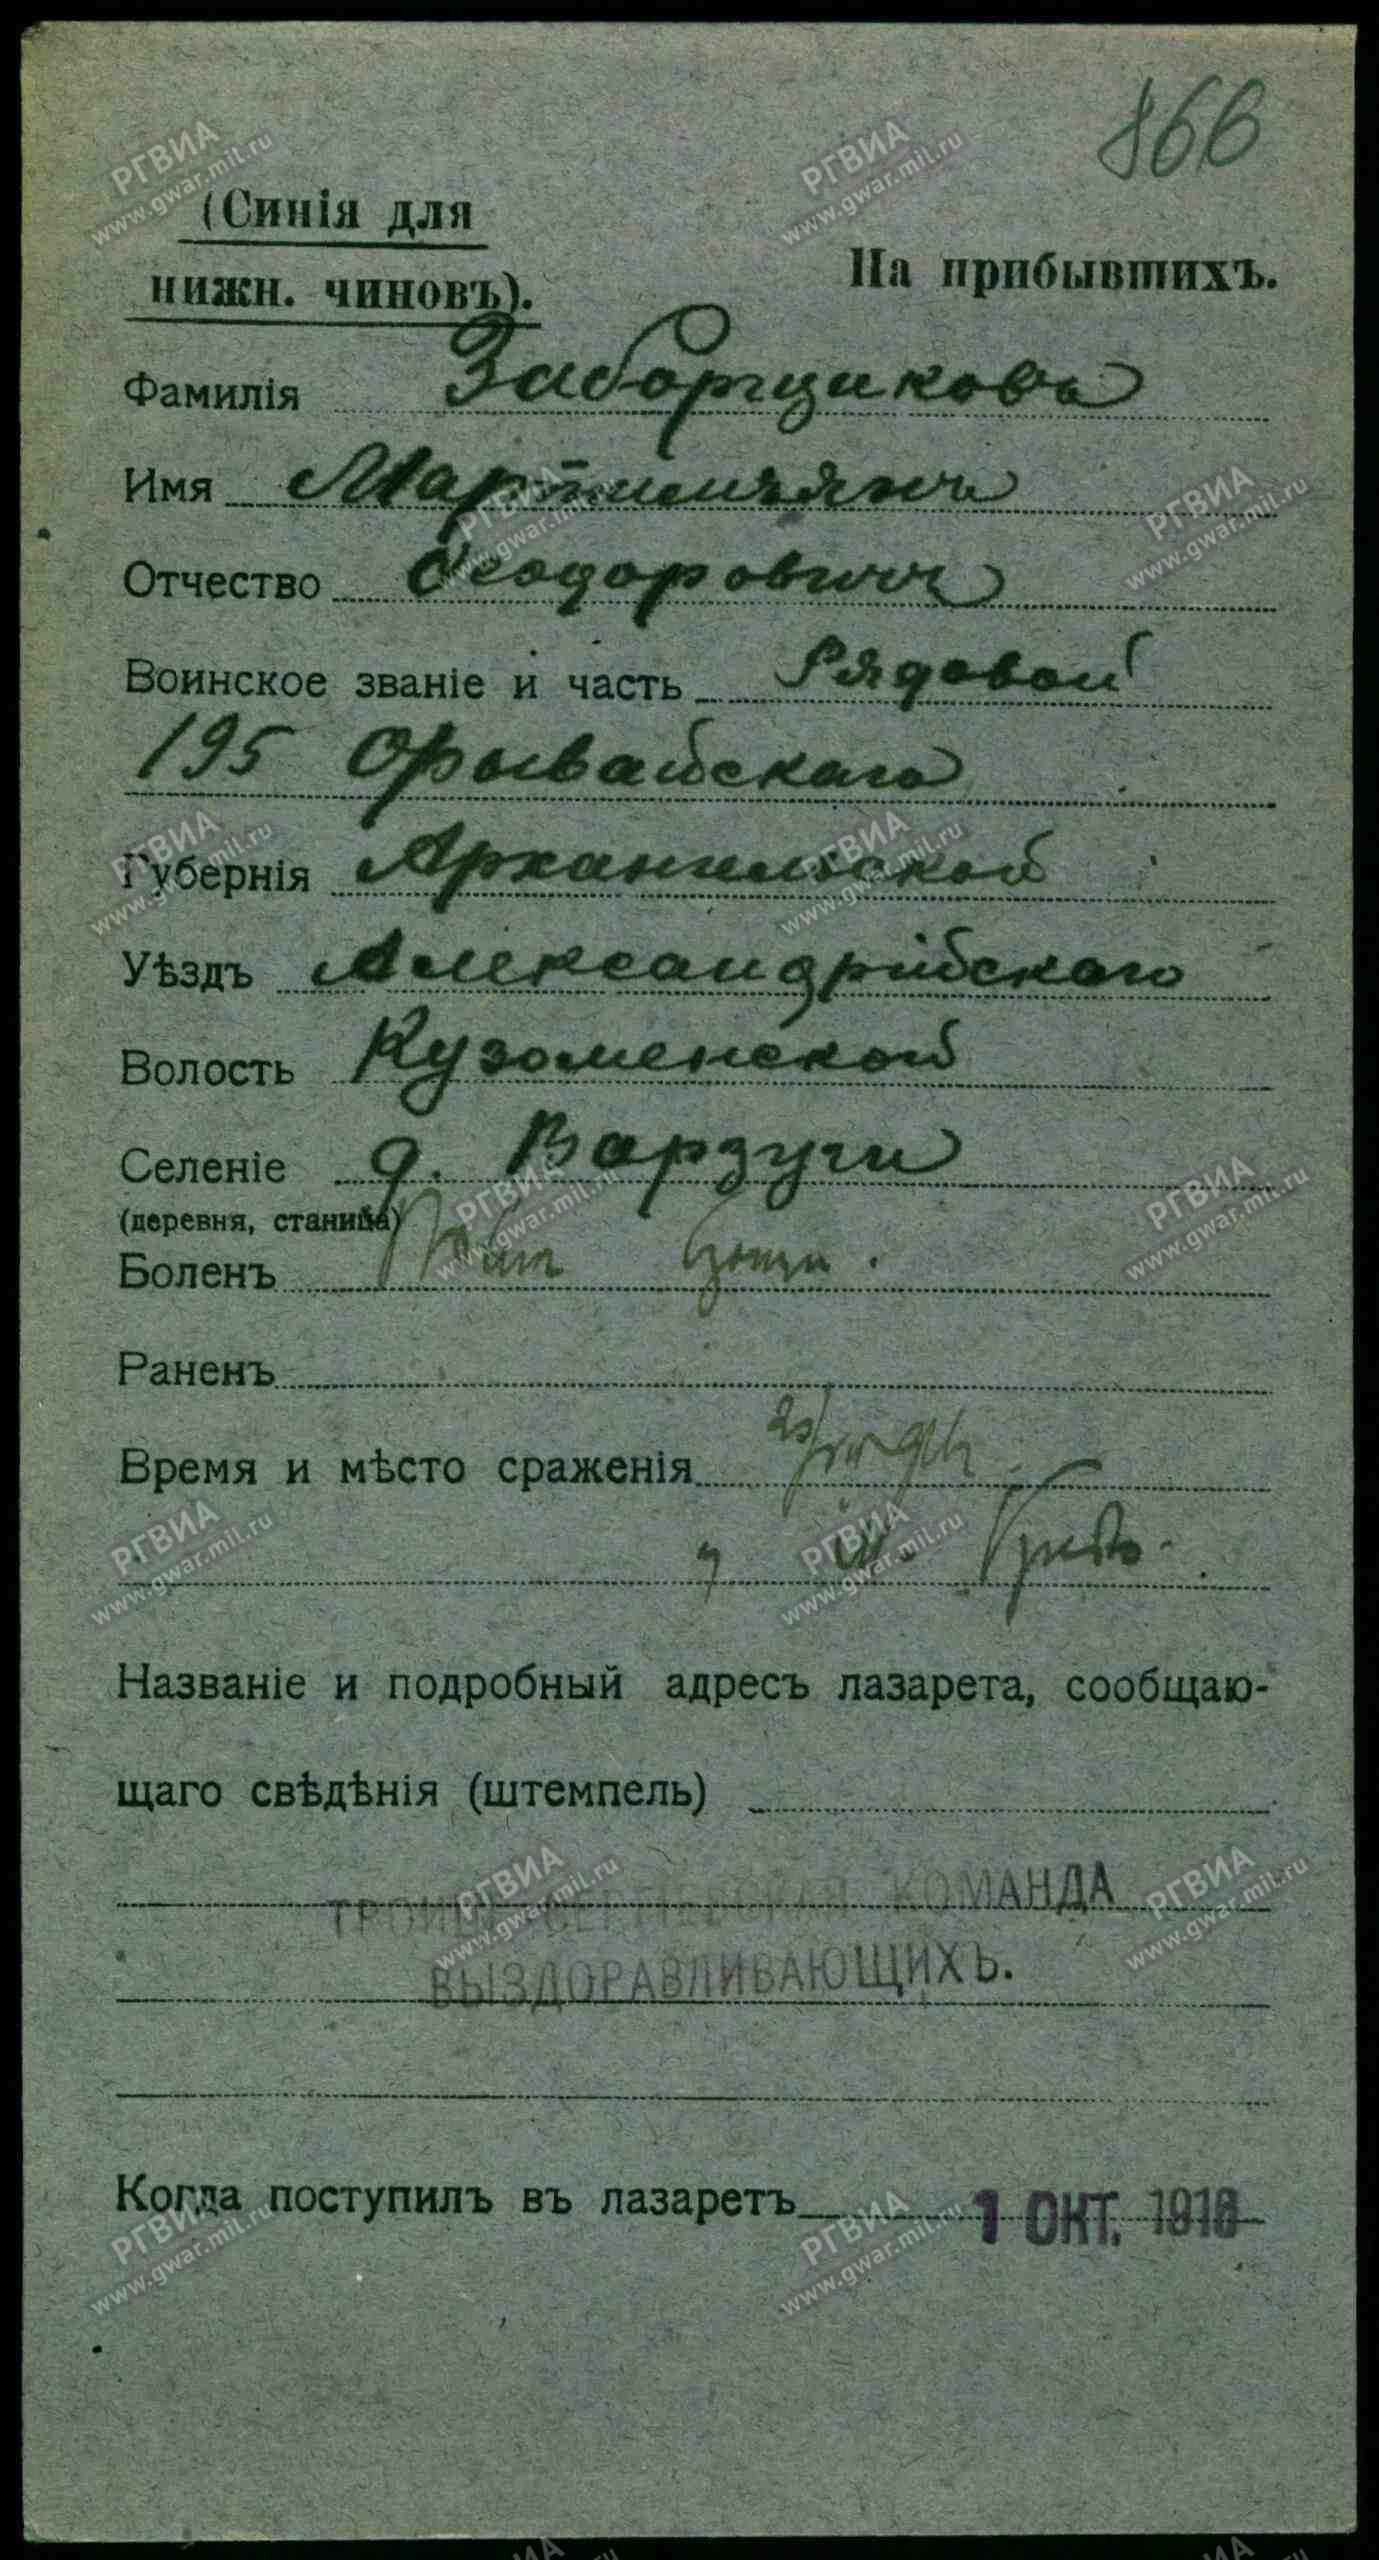 866
(Синія для
нижн. чиновъ).
На прибывшихъ.
Фамилія Заборщиковъ
Имя Мартимьянъ
Отчество Феодоровичъ
Воинское званіе и часть Рядовой
195 Оровайскаго
Губернія Архангельской
Уѣздъ Александрійскаго
Волость Кузоменской
Селеніе д. Варзуги
(деревня, станица)
Боленъ
Раненъ
Время и мѣсто сраженія
Названіе и подробный адресъ лазарета, сообщаю-
щаго свѣдѣнія (штемпель)
ТРОИЦЕ-СЕРГІЕВСКАЯ КОМАНДА
ВЫЗДОРАВЛИВАЮЩИХЪ.
Когда поступилъ въ лазаретъ 1 ОКТ. 1916
РГВИА
www.gwar.mil.ru